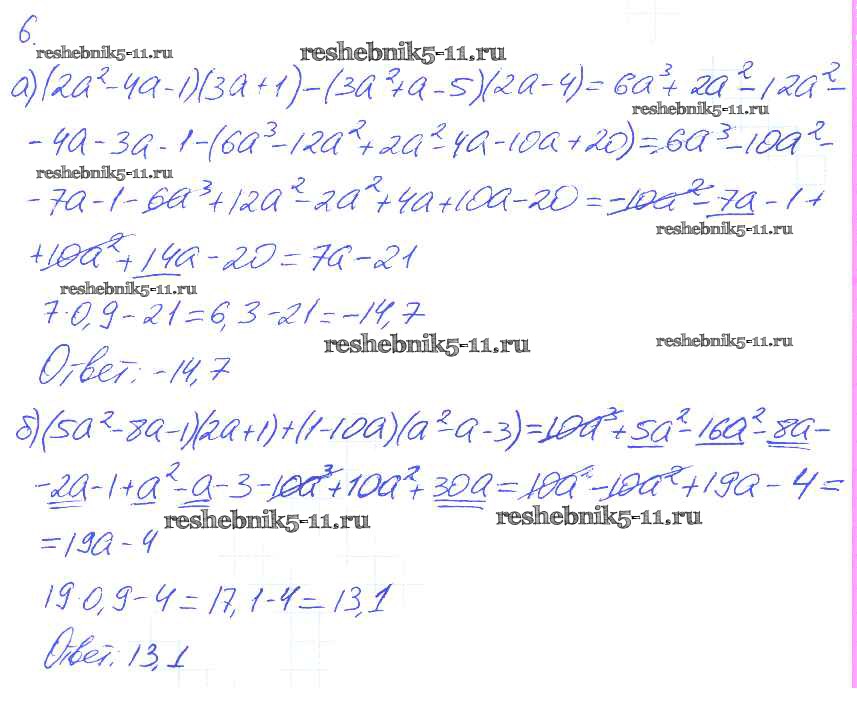 6.
reshebnik5-11.ru reshebnik5-11.ru
а) (2a² - 4a - 1)(3a + 1) - (3a² + a - 5)(2a - 4) = 6a³ + 2a² - 12a² -
reshebnik5-11.ru
- 4a - 3a - 1 - (6a³ - 12a² + 2a² - 4a - 10a + 20) = 6a³ - 10a² -
reshebnik5-11.ru
- 7a - 1 - 6a³ + 12a² - 2a² + 4a + 10a - 20 = -10a² - 7a - 1 +
reshebnik5-11.ru
+ 10a² + 14a - 20 = 7a - 21
reshebnik5-11.ru
7·0,9 - 21 = 6,3 - 21 = -14,7
reshebnik5-11.ru reshebnik5-11.ru
Ответ: -14,7
б) (5a² - 8a - 1)(2a + 1) + (1 - 10a)(a² - a - 3) = 10a³ + 5a² - 16a² - 8a -
- 2a - 1 + a² - a - 3 - 10a³ + 10a² + 30a = 10a² - 10a² + 19a - 4 =
reshebnik5-11.ru reshebnik5-11.ru
= 19a - 4
19·0,9 - 4 = 17,1 - 4 = 13,1
Ответ: 13,1